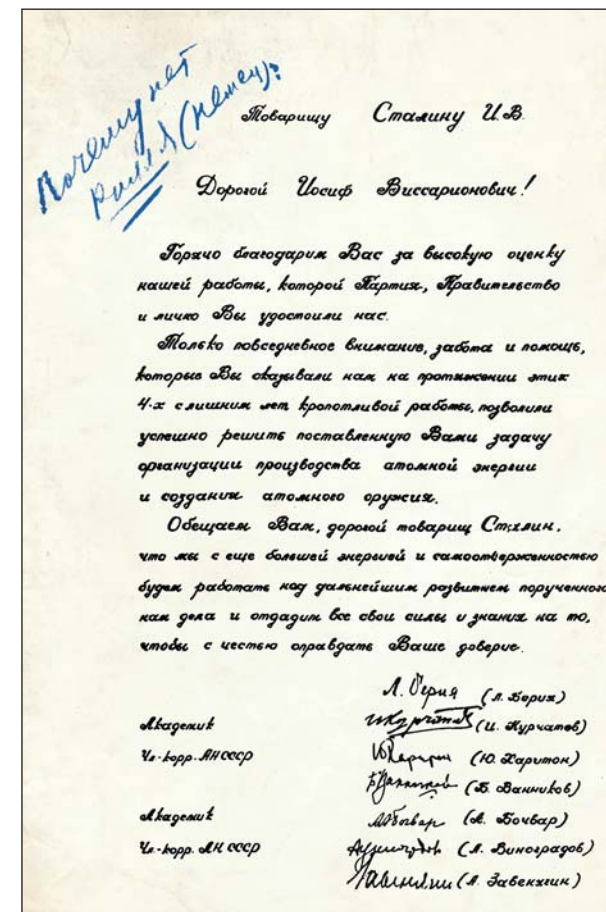 Почему нет
Рилля (немец)?
Товарищу Сталину И.В.
Дорогой Иосиф Виссарионович!
Горячо благодарим Вас за высокую оценку
нашей работы, которой Партия, Правительство
и лично Вы удостоили нас.
Только повседневное внимание, забота и помощь,
которые Вы оказывали нам на протяжении этих
4-х слишним лет кропотливой работы, позволили
успешно решить поставленную Вами задачу
организации производства атомной энергии
и создания атомного оружия.
Обещаем Вам, дорогой товарищ Сталин,
что мы с еще большей энергией и самоотверженностью
будем работать над дальнейшим развитием порученного
нам дела и отдадим все свои силы и знания на то,
чтобы с честью оправдать Ваше доверие.
Л. Берия (Л. Берия)
Академик ИКурчатов (И. Курчатов)
Чл.-корр. АН СССР ЮХаритон (Ю. Харитон)
БВанников (Б. Ванников)
Академик АБочвар (А. Бочвар)
Чл.-корр. АН СССР АВиноградов (А. Виноградов)
Завенягин (А. Завенягин)